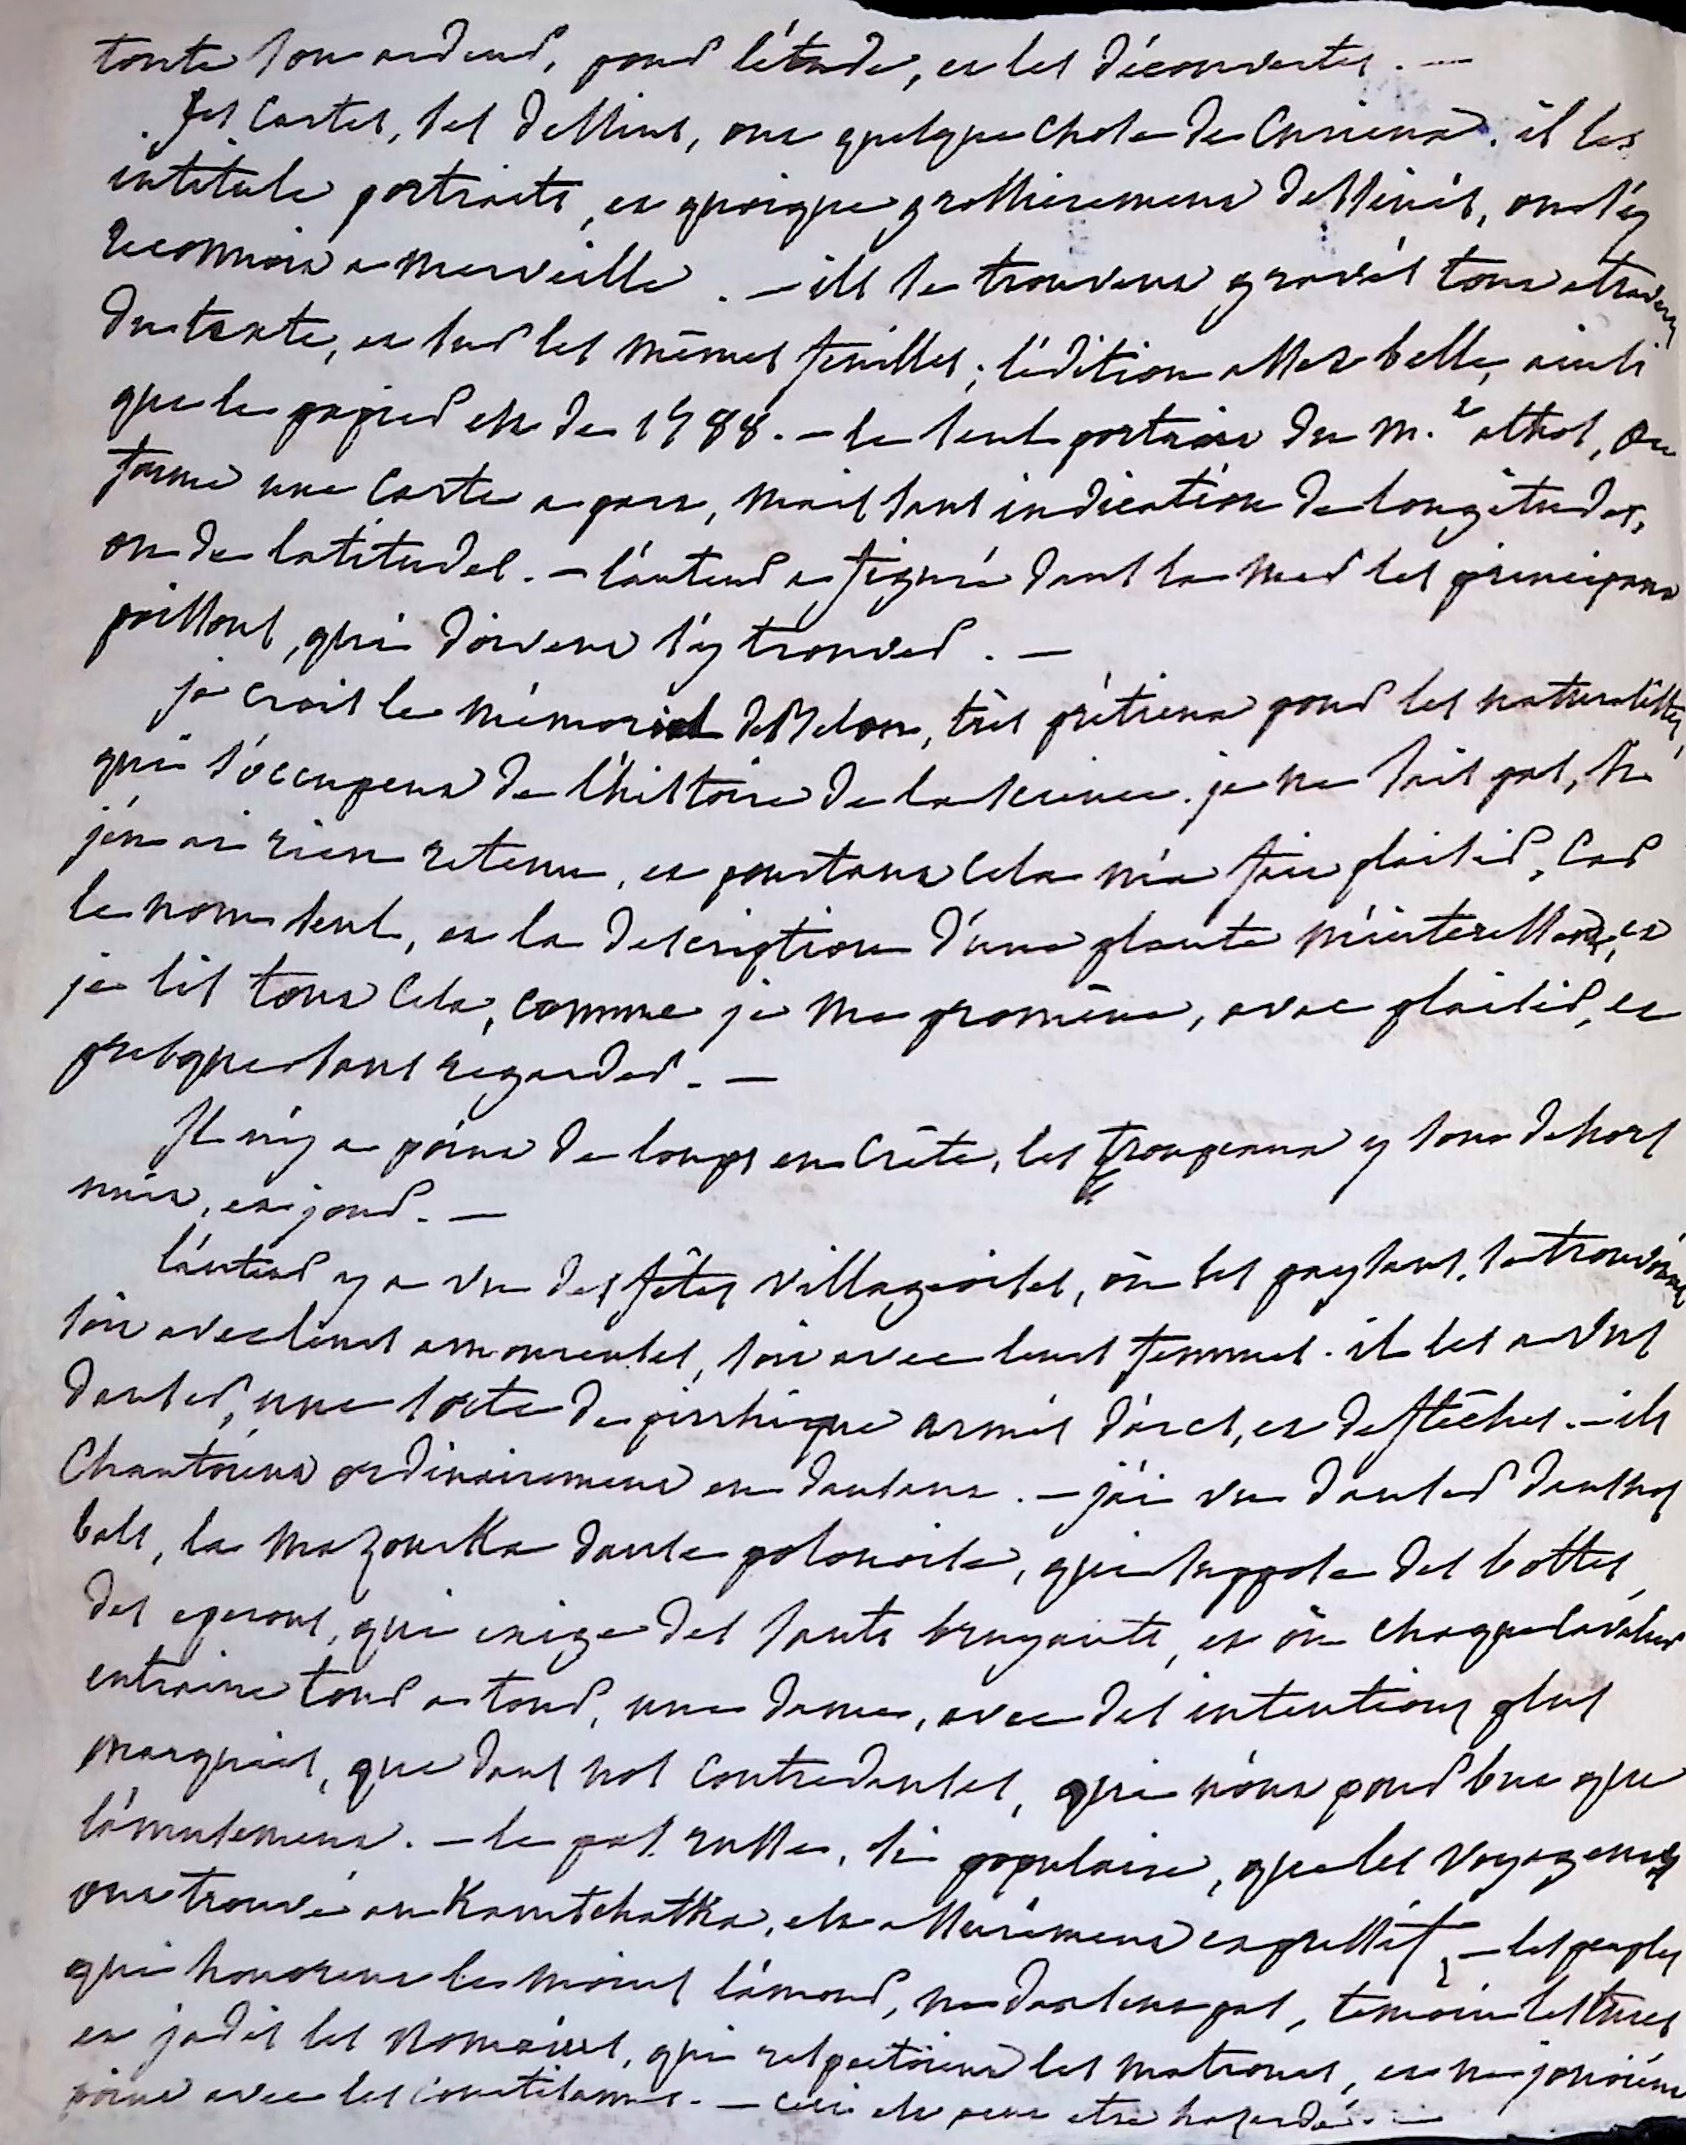 toute son ardeur, pour l'étude, et les découvertes. —
Ses cartes, ses dessins, ont quelque chose de curieux. il les
intitule portraits, et quoique grossierement dessinés, on s'y
reconnoit a merveille. — ils se trouvent gravés tout atravers
du texte, et sur les mêmes feuilles; l'édition assez belle, ainsi
que le papier est de 1588. — le seul portrait du m.t athos,
forme une carte a part, mais sans indication de longitudes,
ou de latitudes. — l'auteur a figuré dans la mer les principaux
poissons, qui doivent s'y trouver. —
je crois le mémorial de Belon, très prétieux pour les naturalistes,
qui s'occupent de l'histoire de la science. je ne sais pas, si
j'en ai rien retenu, et pourtant cela m'a fait plaisir, car
le nom seul, et la description d'une plante m'interessent, et
je lis tout cela, comme je me promène, avec plaisir, et
presque sans regarder. —
Il n'y a point de loups en Crête, les troupeaux y sont dehors
nuit, et jour. —
l'auteur y a vu des fêtes villageoises, où les paysans, se trouvoient
soit avec leurs amoureuses, soit avec leurs femmes. il les a vus
danser, une sorte de pirrhique armés d'arcs, et de flêches. — ils
chantoient ordinairement en dansant. — j'ai vu danser dans nos
bals, la mazourka danse polonoise, qui suppose des bottes,
des eperons, qui exige des sauts bruyants, et où chaque cavalier
entraine tour a tour, une dame, avec des intentions plus
marquées, que dans nos contredanses, qui n'ont pour but que
l'amusement. — le pas russe, si populaire, que les voyageurs
ont trouvé au Kamtchatka, est assurément expressif, — les peuples
qui honorent le moins l'amour, ne dansent pas, temoin les turcs
et jadis les Romains, qui respectoient les matrones, et ne jouoient
point avec les courtisannes. — ceci est peut etre hasardé. —